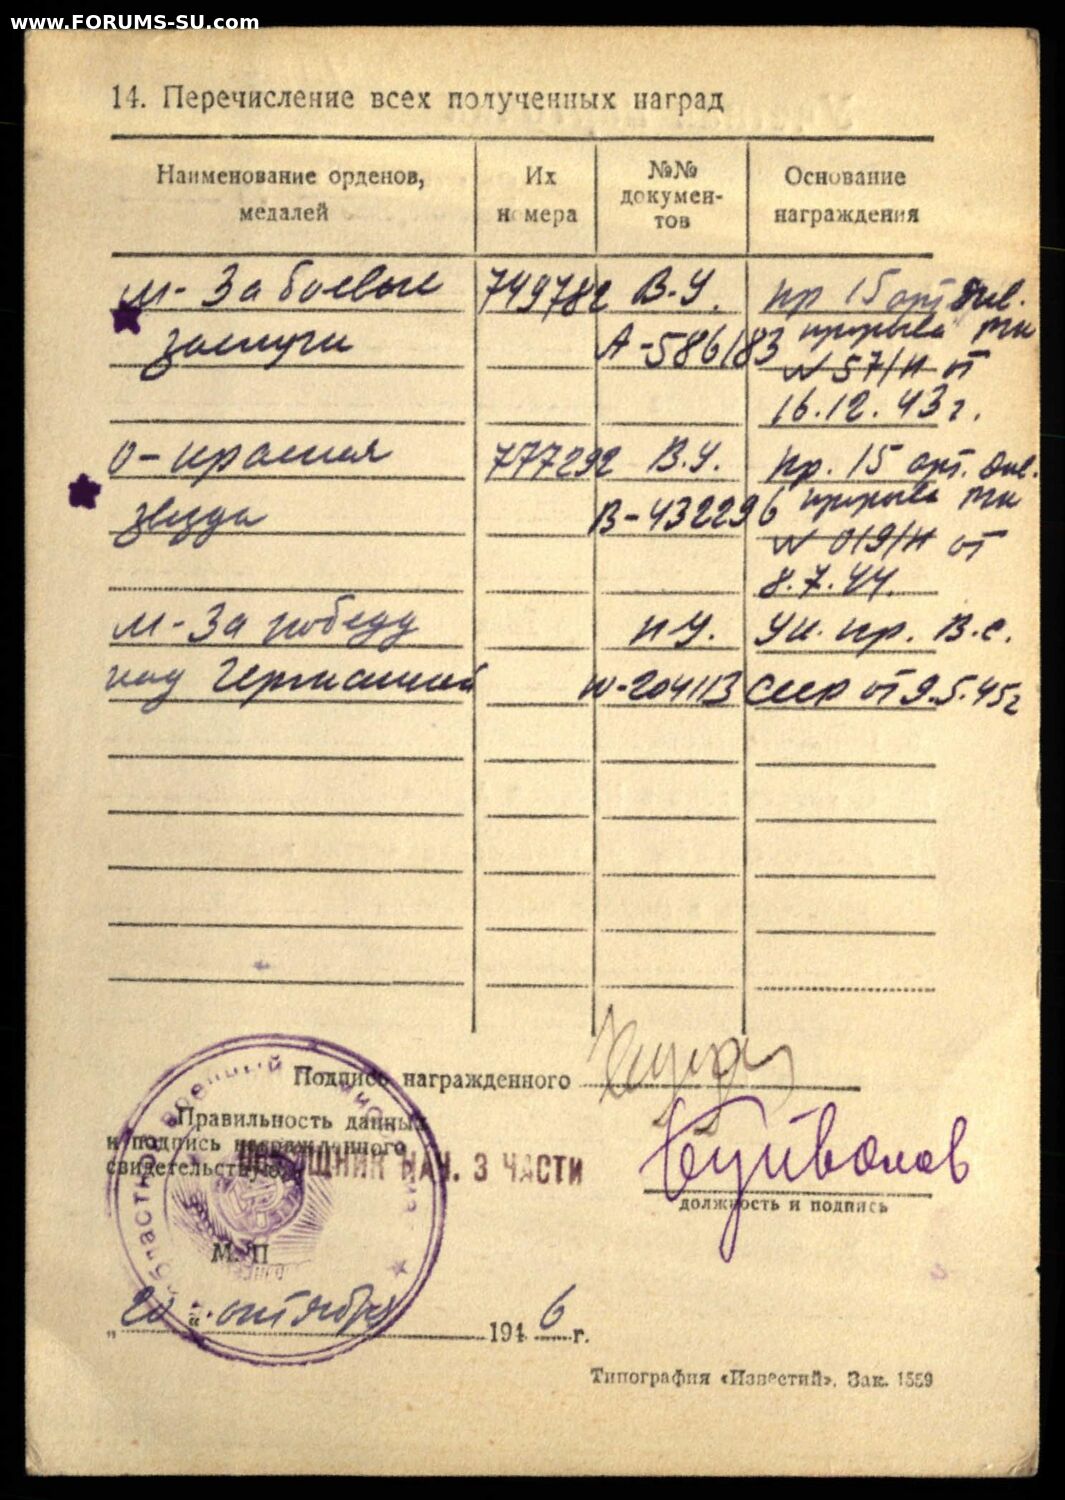 www.FORUMS-SU.com
14. Перечисление всех полученных наград
Наименование орденов, медалей
Их номера
№№ документов
Основание награждения
м- За боевые 749782 В.У. пр 15 арт див.
заслуги А-586183 прорыва РГК
N 57/н от
16.12.43 г.
о- красная 777292 В.У. пр. 15 арт. див.
звезда В-432296 прорыва РГК
N 019/н от
8.7.44.
м- За победу п У. Ук. пр. В.С.
над Германией N-204113 СССР от 9.5.45г
Подпись награжденного
Правильность данных
и подпись награжденного
свидетельствую.
ПОМОЩНИК НАЧ. 3 ЧАСТИ
должность и подпись
М. П
„20“ октября 1946 г.
Типография «Известий». Зак. 1559